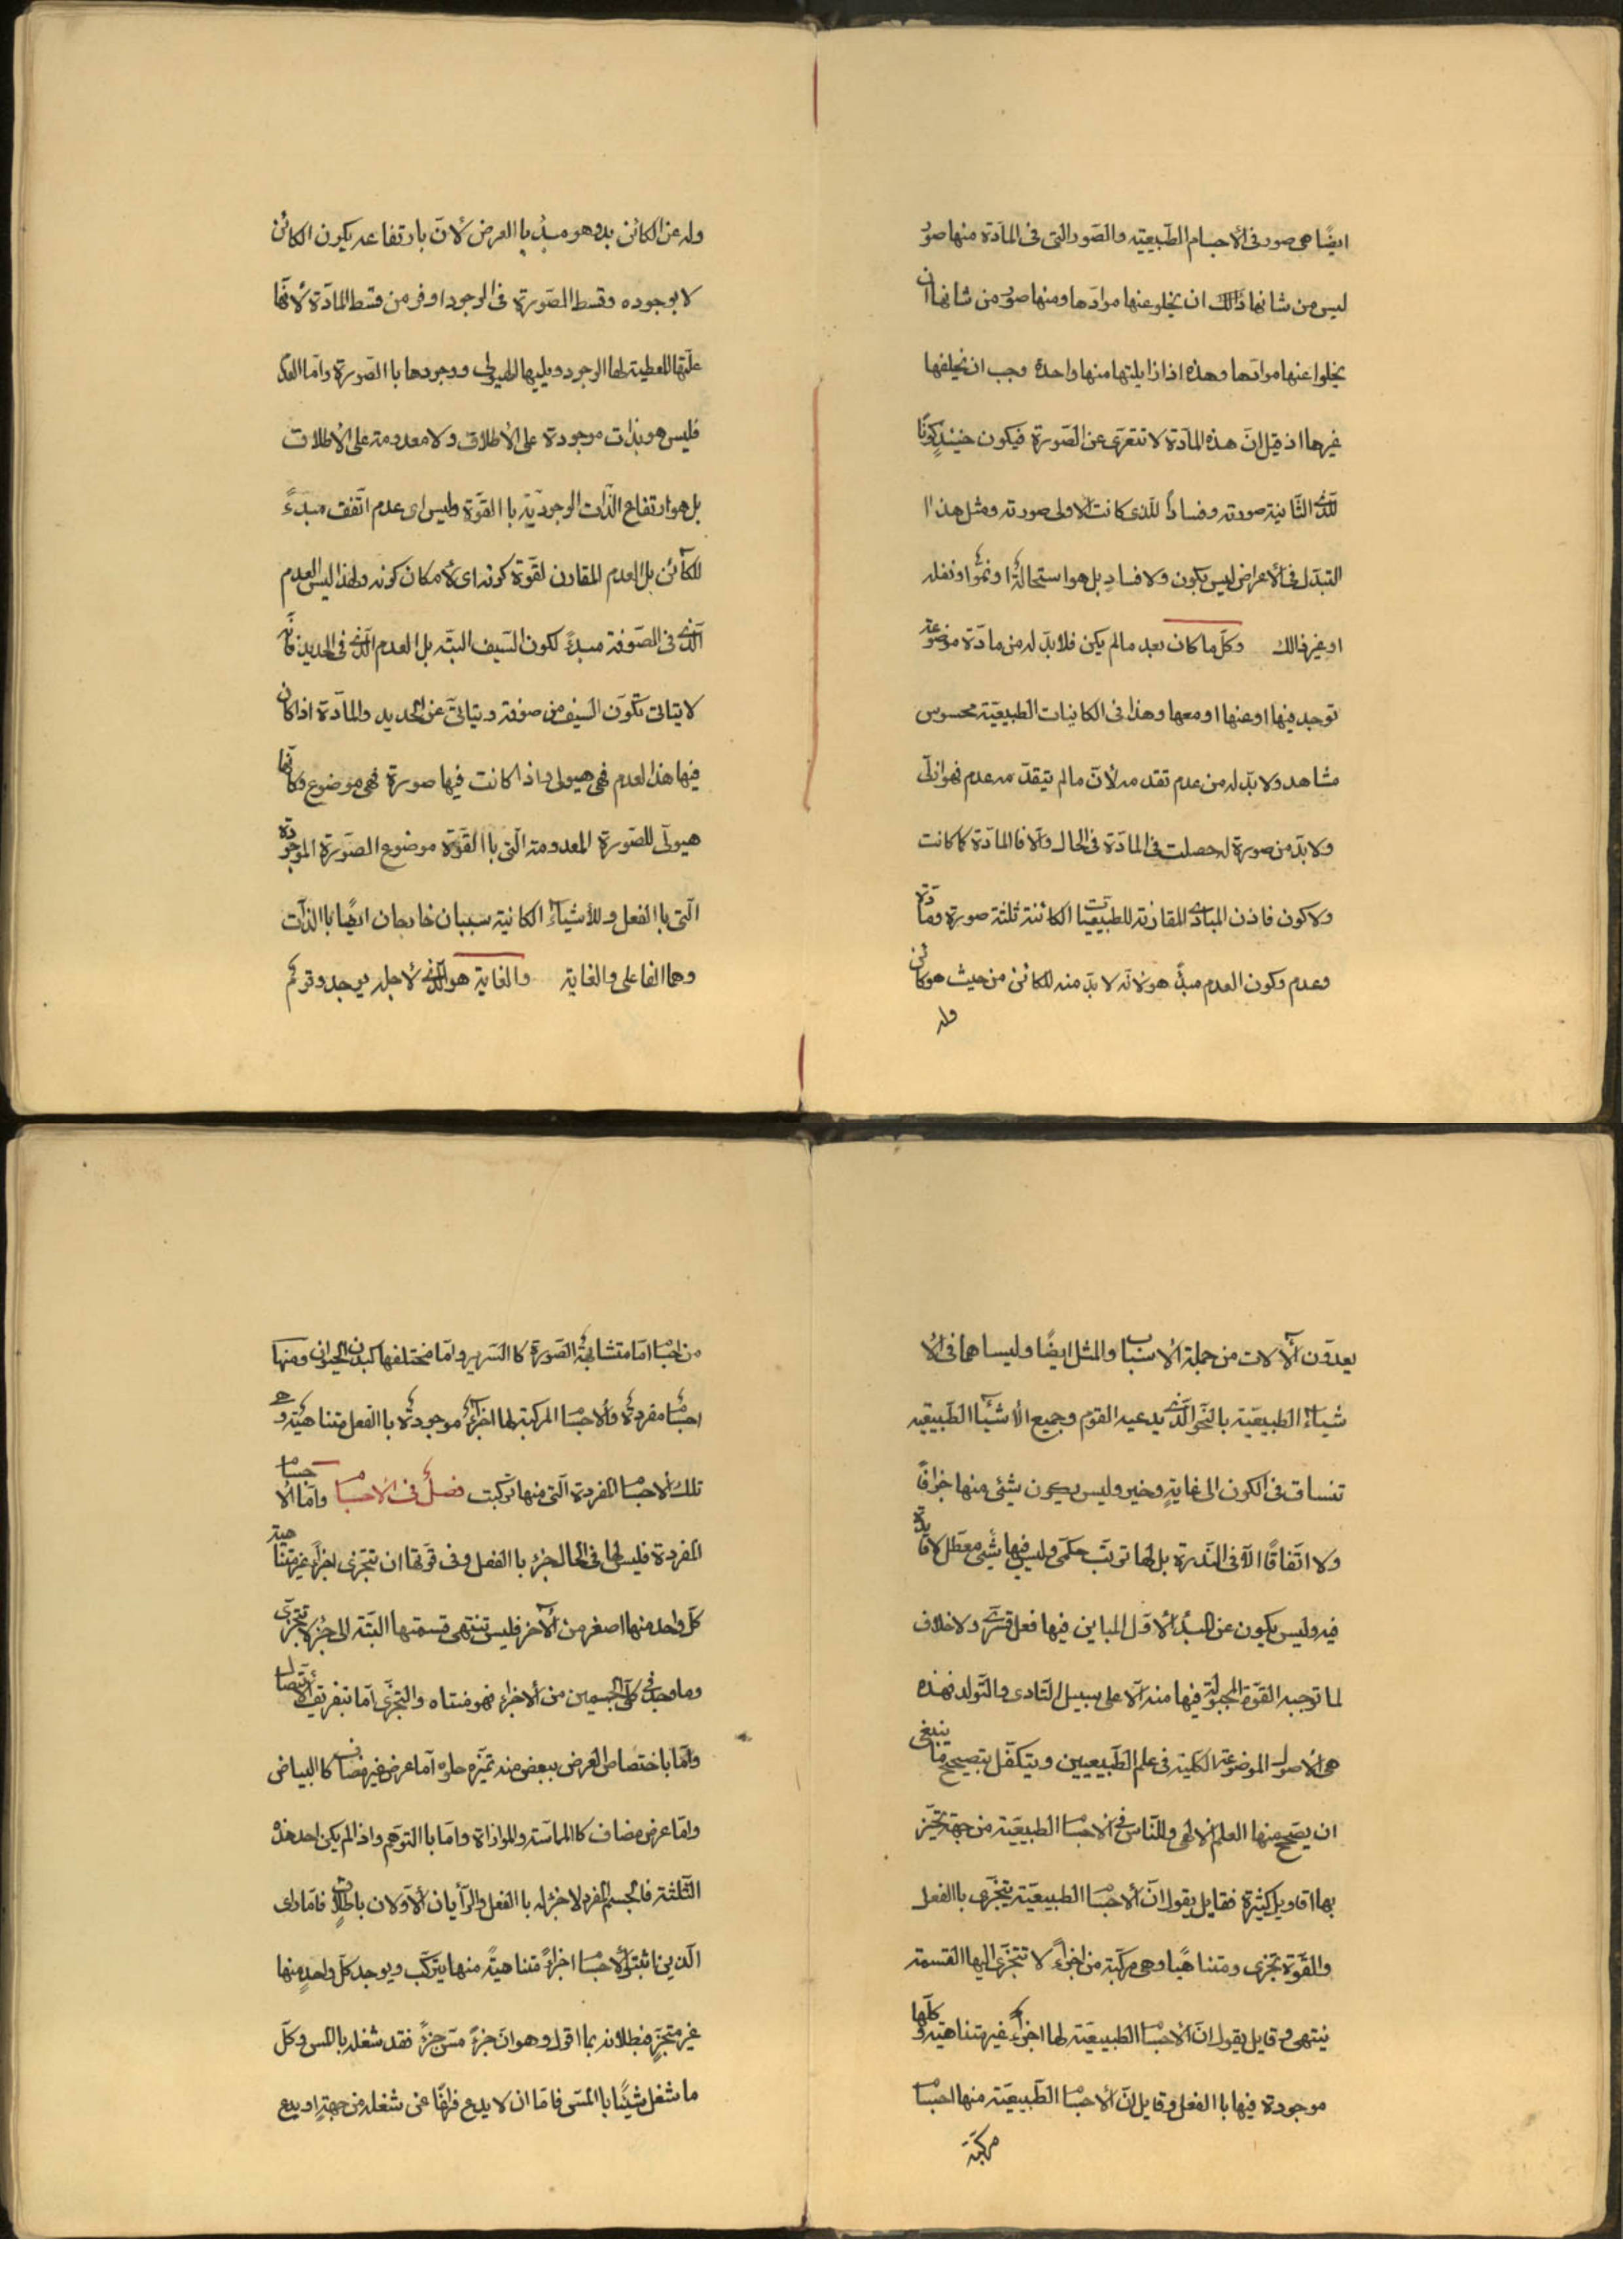 ايضًا هى صور فى الأجسام الطّبيعيّه والصّور الّتى فى المادّة منها صورٌ
ليس من شانها ذالك ان يخلو عنها موادّها ومنها صورٌ من شانها ان
يخلوا عنها موادّها وهذه اذا زايلتها منها واحدة وجب ان يخلفها
غيرها اذ قيل انّ هذه المادّة لا تتعرّى عن الصّورة فيكون حينئذٍ كونًا
للّذى الثّانية صورته وفسادًا للّذى كانت الاولى صورته ومثل هذا
التبدّل فى الأعراض ليس بكون ولا فسادٍ بل هو استحالةٌ او نموٌّ او نقله
او غير ذالك وكلّ ما كان بعد مالم يكن فلا بدّ له من مادّة موضوعة
توجد فيها او عنها او معها وهذا فى الكاينات الطبيعيّة محسوس
مشاهد ولا بدّ له من عدم تقدمه لأنّ مالم يتقدّمه عدم فهو ازلّى
ولا بدّ من صورة له حصلت فى المادّة فى الحال والّا فالمادّة كما كانت
ولا كون فاذن المبادى المقارنة للطبيعيّات الكائنة ثلثة صورة ومادّة
وعدم وكون العدم مبدٌ هو لانّه لا بدّ منه للكائن من حيث هو كائن
وله
وله عن الكائن بدّ وهو مبدٌ باالعرض لأنّ بارتفاعه يكون الكائن
لا بوجوده وقسط الصّورة فى الوجود اوفر من قسط المادّة لأنّها
علّتها المعطية لها الوجود ويليها الهيولى ووجودها باالصّورة وامّا العدم
فليس هو بذات موجودة على الأطلاق ولا معدومة على الأطلاق
بل هو ارتفاع الذّات الوجوديّة باالقوّة وليس اى عدم اتّفق مبدءً
للكآئن بل العدم المقارن لقوّة كونه اى لأمكان كونه ولهذا ليس العدم
الّذى فى الصّوفة مبدءً لكون السّيف البتّه بل العدم الّذى فى الحديد فانّه
لا يتاتى تكوّن السّيف من صوفة ويتاتىّ عن الحديد والمادّة اذا كان
فيها هذا لعدم فهى هيولى واذا كانت فيها صورة فهى موضوع وكانّها
هيولّى للصّورة المعدومة الّتى باالقوّة موضوع الصّورة الموجودة
الّتى باالفعل وللأشياء الكاينة سببان خارجان ايضًا باالذّات
وهما الفاعلى والغاية والغاية هو الّذى لأجله يوجد وقوم
يعدّون الألات من جملة الاسباب والمثل ايضًا وليسا هما فى الا
شياء الطبيعيّة بالنّحو الّذى يدعيه القوم وجميع الأشيآا الطّبيعيّه
تنساق فى الكون الى غايةٍ وخير وليس يكون شيئى منها جزافًا
ولا اتّفاقًا الّا فى النّدرة بل لها ترتّب حكمى وليس فيها شيئى معطّل لا فايدة
فيه وليس يكون عن المبدأ لأوّل المباين فيها فعل قسرّى ولا خلاف
لما توجبه القوّة المجبولة فيها منه الّا على سبيل التّادى والتّولد فهذه
هى الأصول الموضوعة الكليّة فى علم الطّبيعيين ويتكفّل بتصحيح ما ينبغى
ان يصحّح منها العلم الالهى وللنّاس فى الأجسام الطبيعيّة من جهة تحيّز
بها اقاويل كثيرة فقايل يقول انّ الأجسام الطبيعيّة تتجزّى باالفعل
والقوّة تجزى ومتناهيًا وهى مركّبة من اجزاءً لا تتجزّى اليها القسمة
ينتهى وقايل يقول انّ الأجسام الطبيعيّة لها اجزاء غير متناهية وكلّها
موجودة فيها باالفعل وقايل انّ الأجسام الطّبيعيّة منها اجسام
مركّبة
من اجسام امّا متشابهة الصّورة كاالسّرير وامّا مختلفها كبدن الحيوانى ومنها
اجسام مفردة والأجسام المركّبة لها اجزاء موجودة باالفعل متناهية وهى
تلك الأجسام المفردة الّتى منها تركّبت فصلٌ فى الأجسام وامّا الأجسام
المفردة فليس لها فى الحال جزء باالفعل وفى قوّتها ان تتجزى اجزآءً غير متناهية
كلّ واحد منها اصغر من الآخر فليس تنتهى قسمتها البتّة الى جزء لا يتجزى
وما وجد فى كلّ الجسمين من الأجزاء فهو متناه والتجزّى امّا بتفريق الأتّصال
وامّا باختصاص العرض ببعض منه تميّزه حلوه امّا عرض غير مضاف كاالبياض
وامّا عرض مضاف كاالمماسّة والموازاة وامّا باالتوهّم واذا لم يكن احد هذه
الثّلثة فالجسم المفرد لا جزء له باالفعل والرّأيان الأوّلان باطلان فامّا راى
الّذين اثبتوا لأجسام اجزاءً متناهيةً منها يتركّب ويوجد كلّ واحدٍ منها
غير متجزٍ فبطلانه بما اقول وهو انّ جزءً مسّ جزءً فقد شغله باالمس وكلّ
ما شغل شيئًا باالمسّ فامّا ان لا يدع فراغًا عن شغله من جهةٍ او يدع